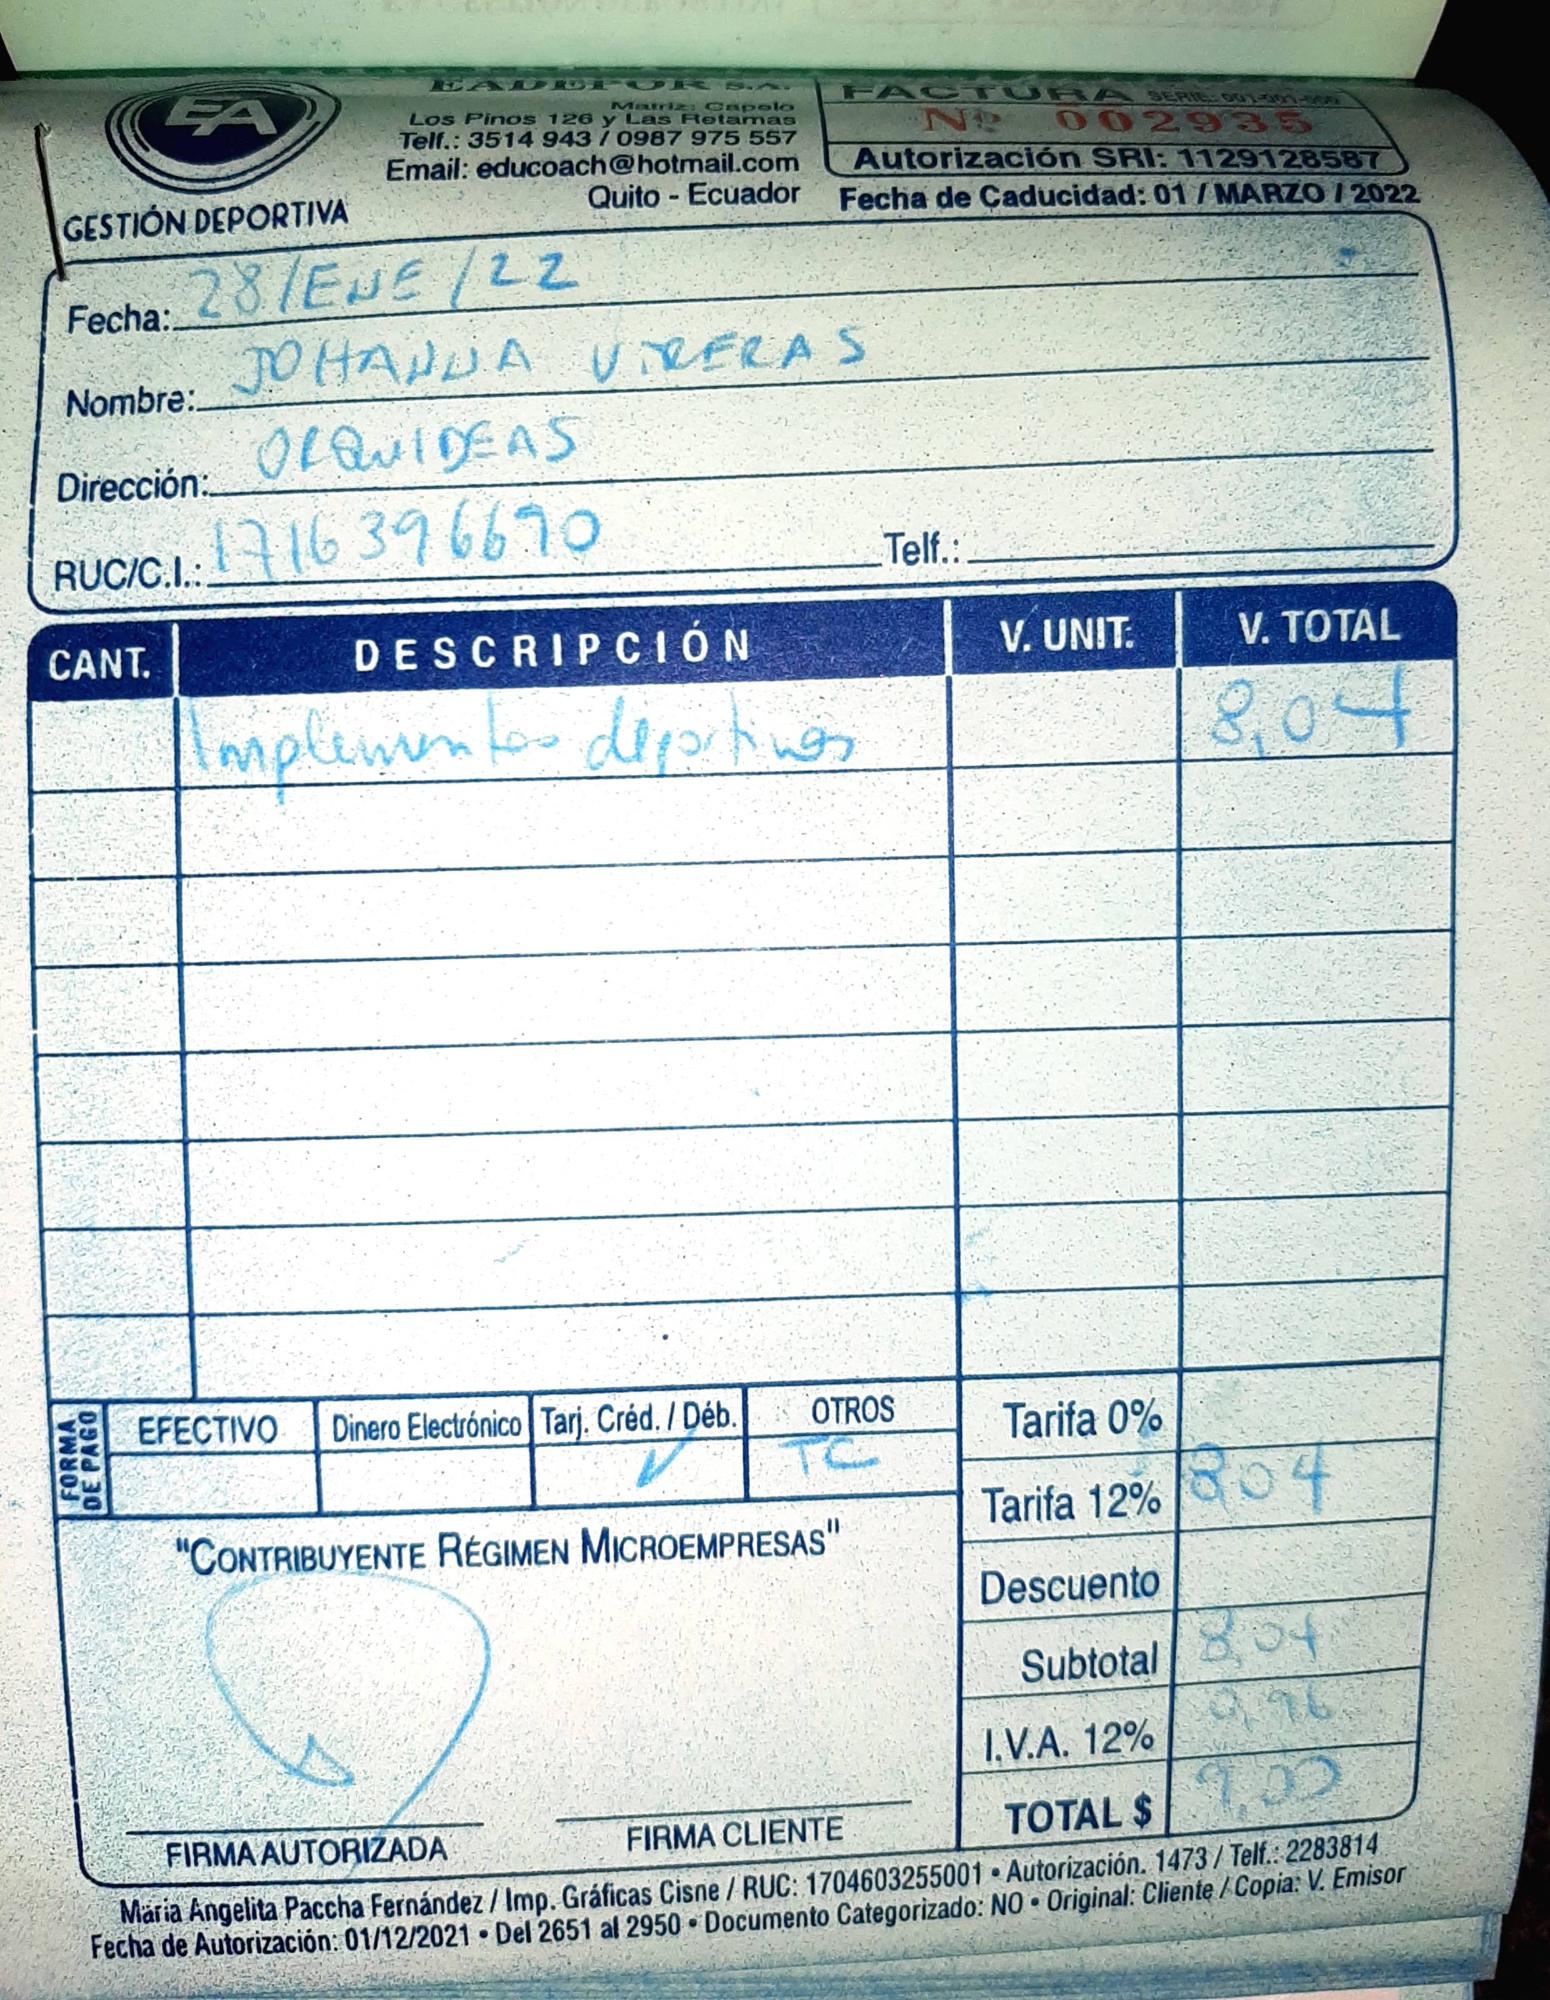 EA
GESTIÓN DEPORTIVA
EADEPOR S.A.
Matriz: Capelo
Los Pinos 126 y Las Retamas
Telf.: 3514 943 / 0987 975 557
Email: educoach@hotmail.com
Quito - Ecuador
FACTURA SERIE: 001-001-000
Nº 002935
Autorización SRI: 1129128587
Fecha de Caducidad: 01 / MARZO / 2022
Fecha: 28/ENE/22
Nombre: JOHANNA VITERAS
Dirección: ORQUIDEAS
RUC/C.I.: 1716396690 Telf.:
CANT. DESCRIPCIÓN V. UNIT. V. TOTAL
Implementos deportivos 8,04
FORMA DE PAGO
EFECTIVO Dinero Electrónico Tarj. Créd. / Déb. OTROS
✓ TC
Tarifa 0%
Tarifa 12% 8,04
Descuento
Subtotal 8,04
I.V.A. 12% 0,96
TOTAL $ 9,00
"CONTRIBUYENTE RÉGIMEN MICROEMPRESAS"
FIRMA AUTORIZADA FIRMA CLIENTE
María Angelita Paccha Fernández / Imp. Gráficas Cisne / RUC: 1704603255001 • Autorización. 1473 / Telf.: 2283814
Fecha de Autorización: 01/12/2021 • Del 2651 al 2950 • Documento Categorizado: NO • Original: Cliente / Copia: V. Emisor